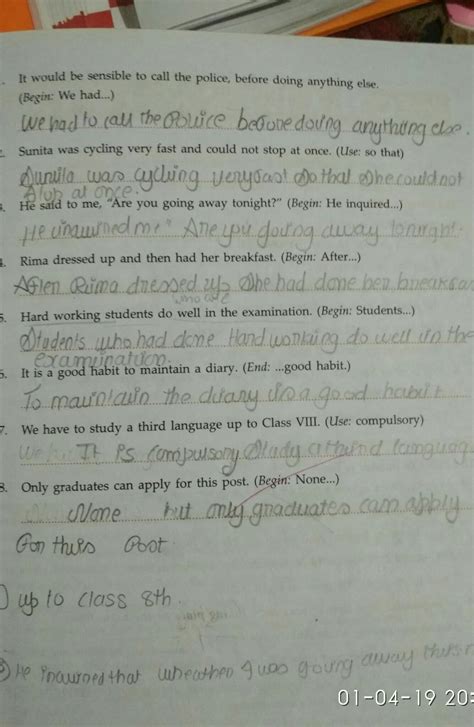 . It would be sensible to call the police, before doing anything else.
(Begin: We had...)
We had to call the Police before doing anything else.
2. Sunita was cycling very fast and could not stop at once. (Use: so that)
Sunita was cycling very fast so that she could not
Stop at once.
. He said to me, "Are you going away tonight?" (Begin: He inquired...)
He me" Are you going away tonight.
. Rima dressed up and then had her breakfast. (Begin: After...)
After Rima dressed up She had done her
who are
5. Hard working students do well in the examination. (Begin: Students...)
Students who had done Hand working do well in the
examination.
5. It is a good habit to maintain a diary. (End: ...good habit.)
To maintain the diary is a good habit
7. We have to study a third language up to Class VIII. (Use: compulsory)
It Ps compulsory Stady a third languag
8. Only graduates can apply for this post. (Begin: None...)
None but only graduates can apply
For this Post.
) up to class 8th.
3) He that wheather I was going away
01-04-19 20: